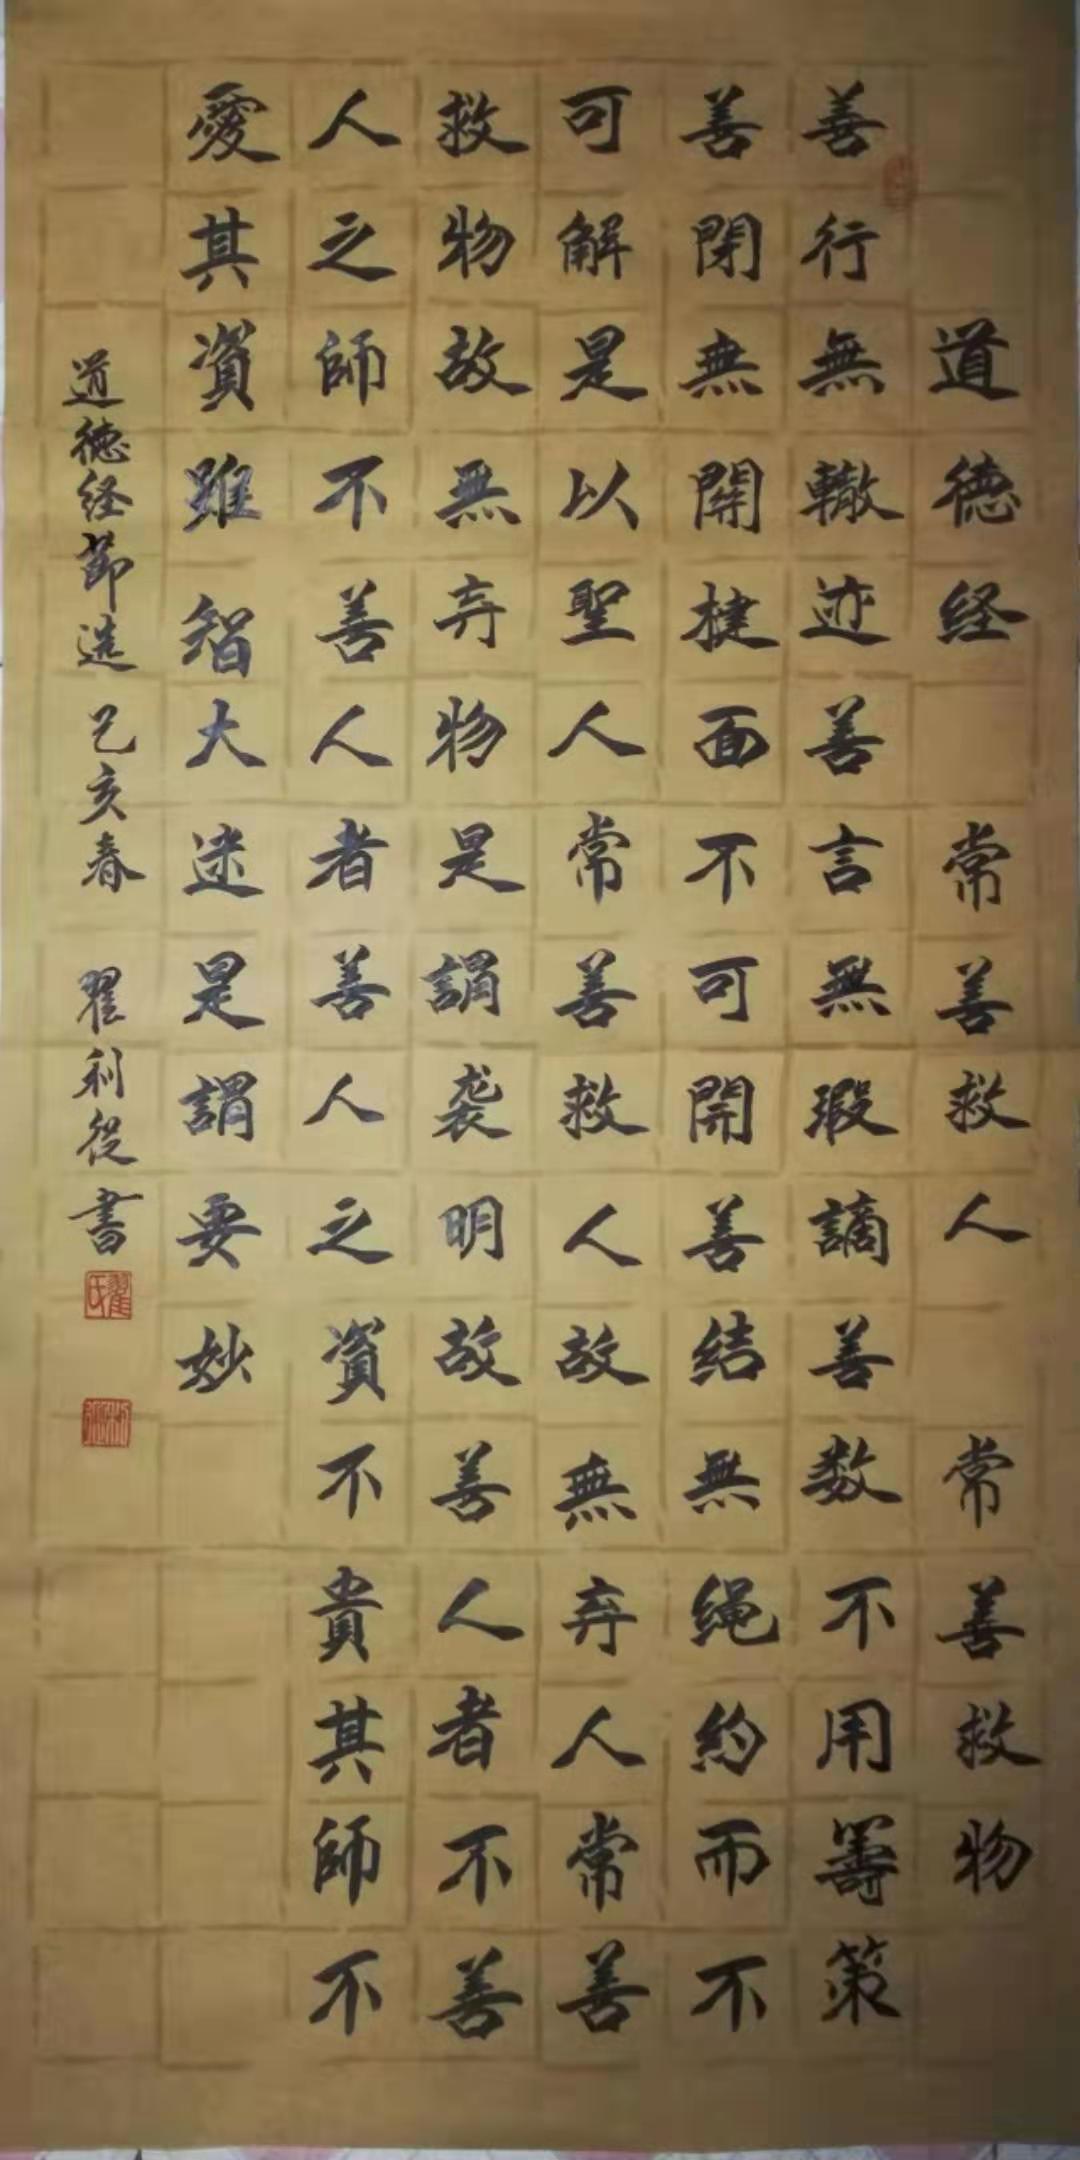 道德经 常善救人 常善救物
善行無轍迹善言無瑕謫善数不用籌策
善閉無関楗面不可開善结無绳约而不
可解是以聖人常善救人故無弃人常善
救物故無弃物是謂袭明故善人者不善
人之師不善人者善人之資不貴其師不
愛其資雖智大迷是謂要妙
道德经節选 己亥春 翟利從書
翟氏